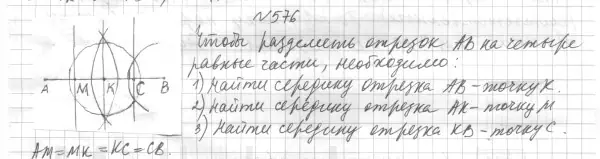 №576
Чтобы разделить отрезок АВ на четыре
равные части, необходимо:
1) Найти середину отрезка АВ - точку К.
2) Найти середину отрезка АК - точку М
3) Найти середину отрезка КВ - точку С.
А М К С В
АМ = МК = КС = СВ.